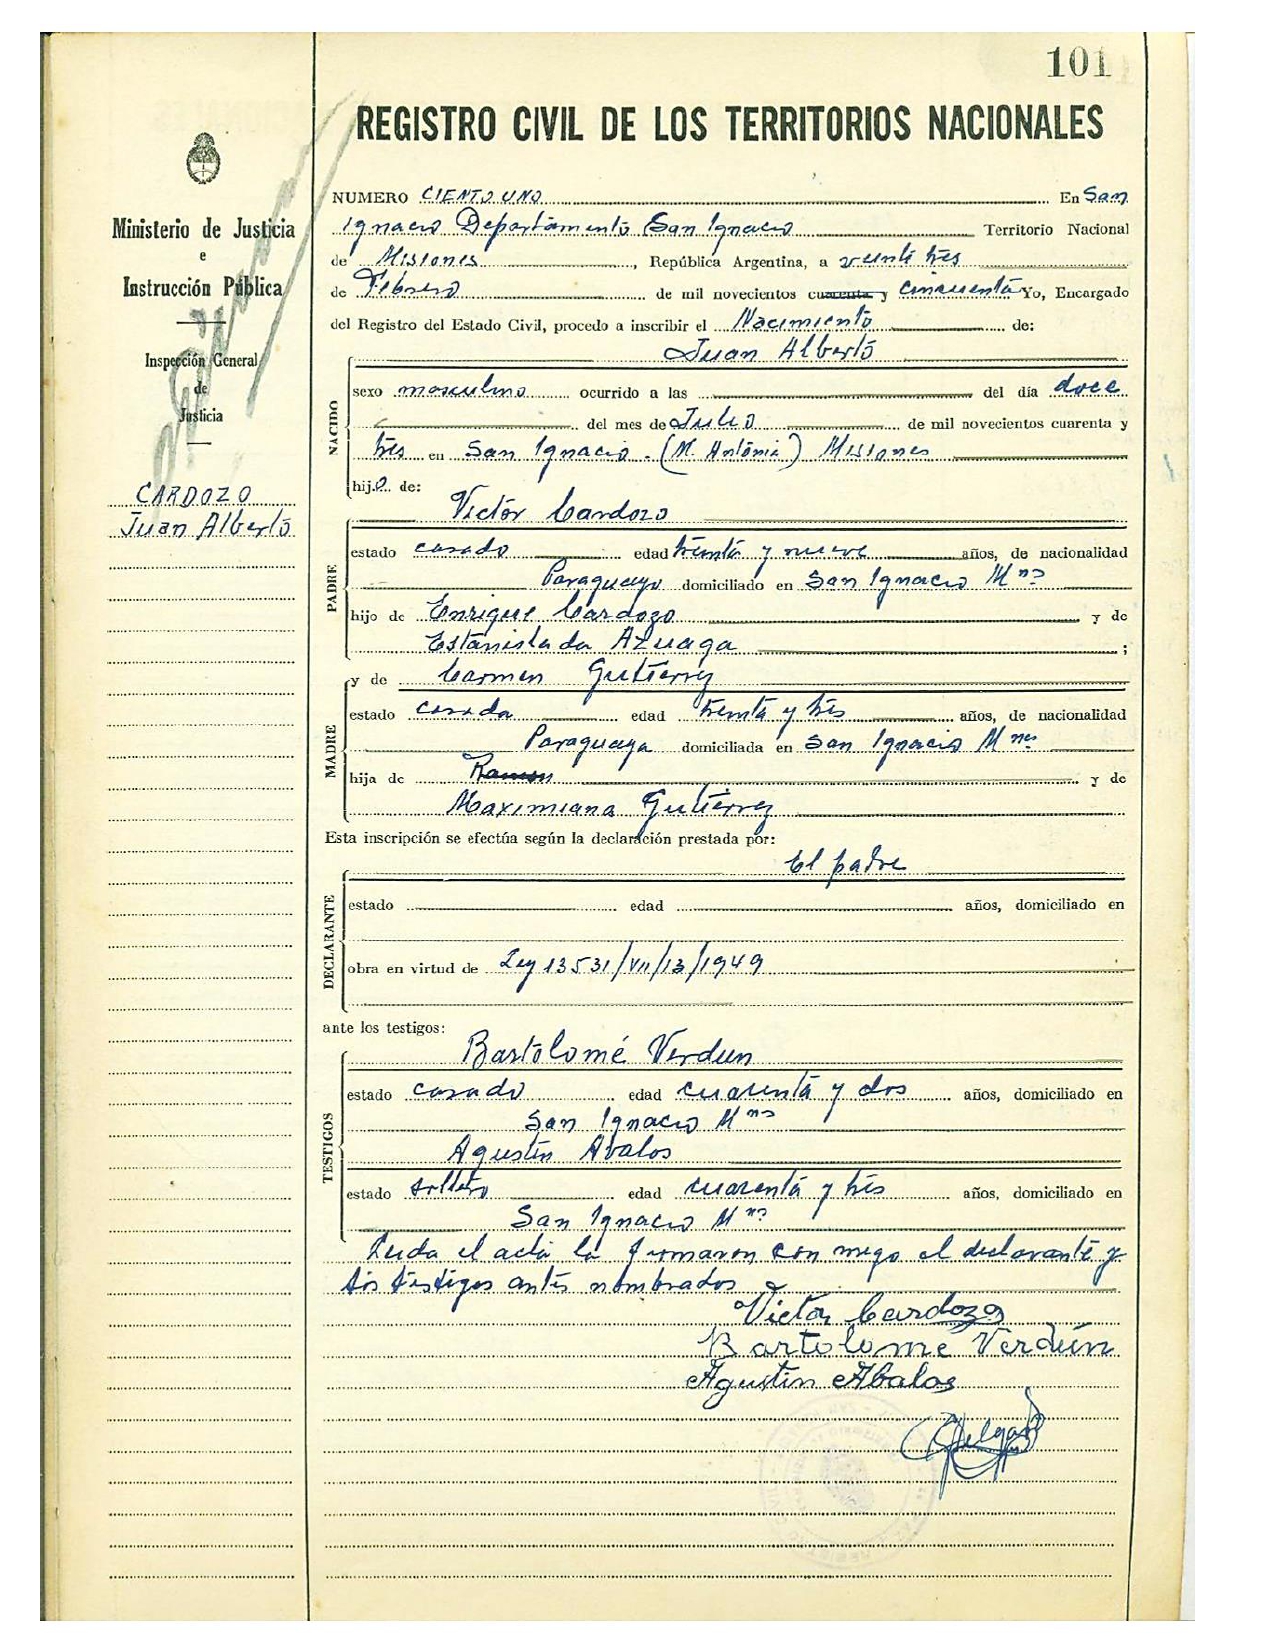 101
REGISTRO CIVIL DE LOS TERRITORIOS NACIONALES
Ministerio de Justicia
e
Instrucción Pública
Inspección General
de
Justicia
CARDOZO
Juan Alberto
NUMERO CIENTO UNO En San
Ignacio Departamento San Ignacio Territorio Nacional
de Misiones, República Argentina, a veinte tres
de Febrero de mil novecientos cuarenta y cincuenta Yo, Encargado
del Registro del Estado Civil, procedo a inscribir el Nacimiento de:
Juan Alberto
NACIDO
sexo masculino ocurrido a las del día doce
del mes de Julio de mil novecientos cuarenta y
tres en San Ignacio. (M. Antonia) Misiones
hijo de:
Victor Cardozo
PADRE
estado casado edad treinta y nueve años, de nacionalidad
Paraguayo domiciliado en San Ignacio Mnes
hijo de Enrique Cardozo y de
Estanislada Azuaga ;
y de Carmen Gutierrez
MADRE
estado casada edad treinta y tres años, de nacionalidad
Paraguaya domiciliada en San Ignacio Mnes
hija de Ramon y de
Maximiana Gutierrez
Esta inscripción se efectúa según la declaración prestada por:
El padre
DECLARANTE
estado edad años, domiciliado en
obra en virtud de Ley 13531/VII/13/1949
ante los testigos:
Bartolomé Verdun
TESTIGOS
estado casado edad cuarenta y dos años, domiciliado en
San Ignacio Mnes
Agustin Abalos
estado soltero edad cuarenta y tres años, domiciliado en
San Ignacio Mnes
Leida el acta la firmaron con migo el declarante y
los testigos antes nombrados
Victor Cardozo
Bartolome Verdún
Agustin Abalos